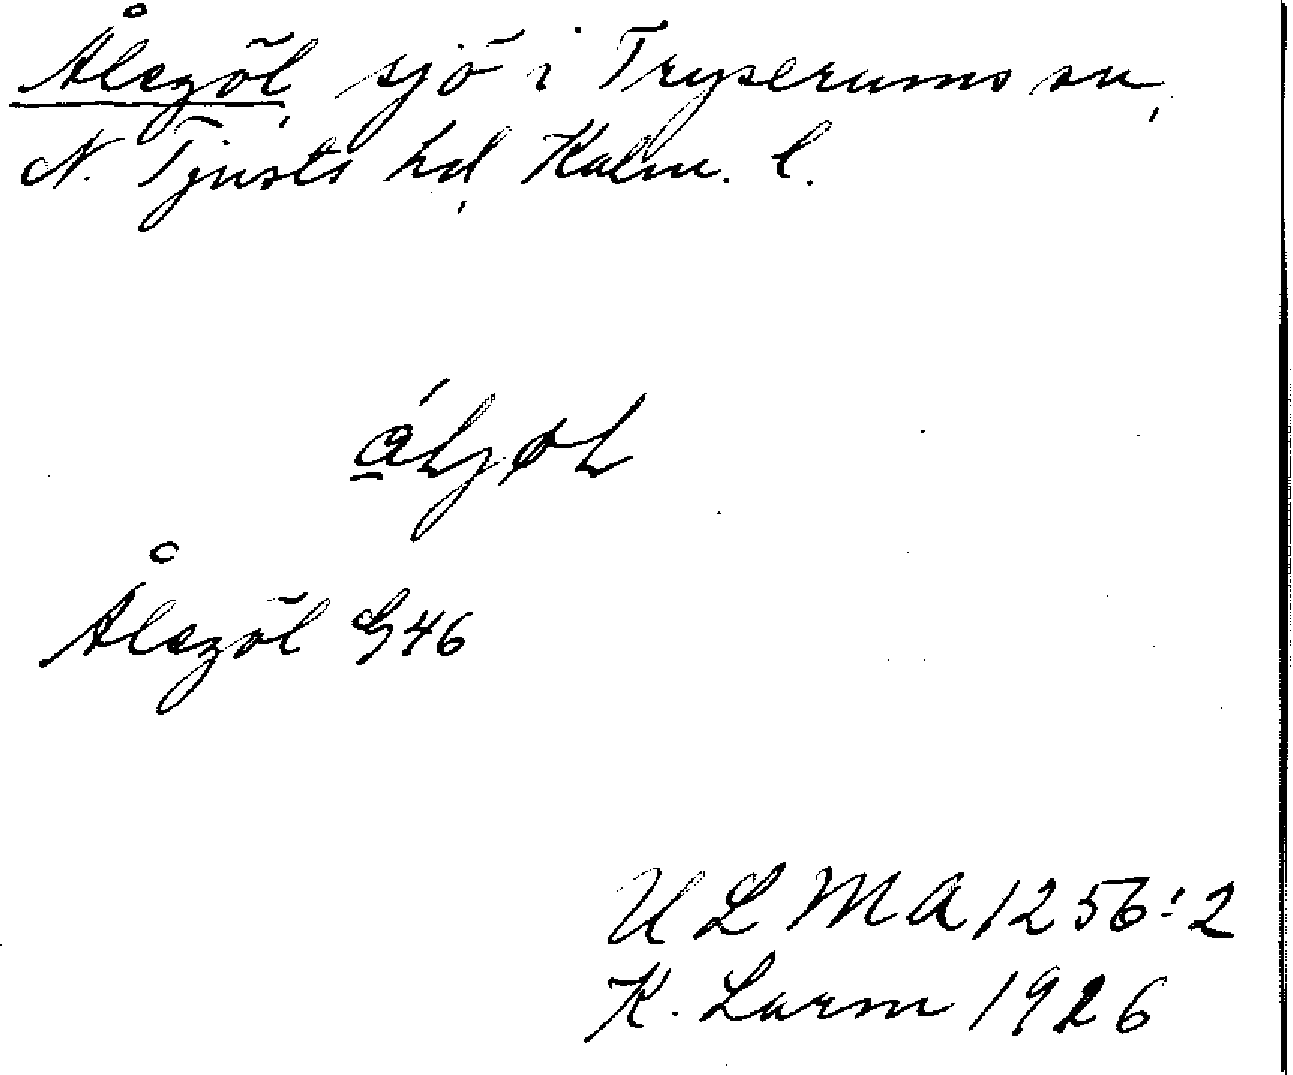 Ålegöl, sjö i Tryserums sn,
N. Tjusts hd, Kalm. l.
Ålegöl G46
ULMA 1256:2
K. Larm 1926